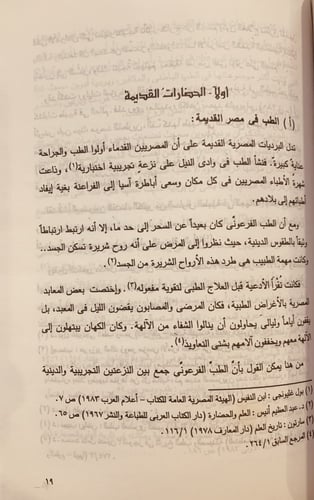 اولا - الحضارات القديمة
( أ ) الطب فى مصر القديمة :
تدل البرديات المصرية القديمة على أن المصريين القدماء أولوا الطب والجراحة
عناية كبيرة. فنشأ الطب فى وادى النيل على نزعة تجريبية اختبارية(١)، وذاعت
شهرة الأطباء المصريين فى كل مكان وسعى أباطرة آسيا إلى الفراعنة بغية إيفاد
أطبائهم إلى بلادهم.
ومع أن الطب الفرعونى كان بعيداً عن السحر إلى حد ما، إلا أنه ارتبط ارتباطاً
وثيقاً بالطقوس الدينية، حيث نظروا إلى المرض على أنه روح شريرة تسكن الجسد..
وكانت مهمة الطبيب هى طرد هذه الأرواح الشريرة من الجسد(٢).
فكانت تُقرأ الأدعية قبل العلاج الطبى لتقوية مفعوله(٣). وإختصت بعض المعابد
المصرية بالأغراض الطبية، فكان المرضى والمصابون يقضون الليل فى المعبد، بل
يقفون أياماً وليالى يحاولون أن ينالوا الشفاء من الآلهة. وكان الكهان يبتهلون إلى
الآلهة معهم ويخففون آلامهم بشتى التعاويذ(٤).
من هنا يمكن القول بأنَّ الطب الفرعونى جمع بين النزعتين التجريبية والدينية
(١) بول غليونجى : ابن النفيس (الهيئة المصرية العامة للكتاب - أعلام العرب ١٩٨٣) ص ٧.
(٢) د. عبد العظيم أنيس : العلم والحضارة (دار الكتاب العربى للطباعة والنشر ١٩٦٧) ص ٦٥.
(٣) سارتون : تاريخ العلم (دار المعارف ١٩٧٨) ١١٦/١.
(٤) المرجع السابق ٢٦٤/١.
١٩